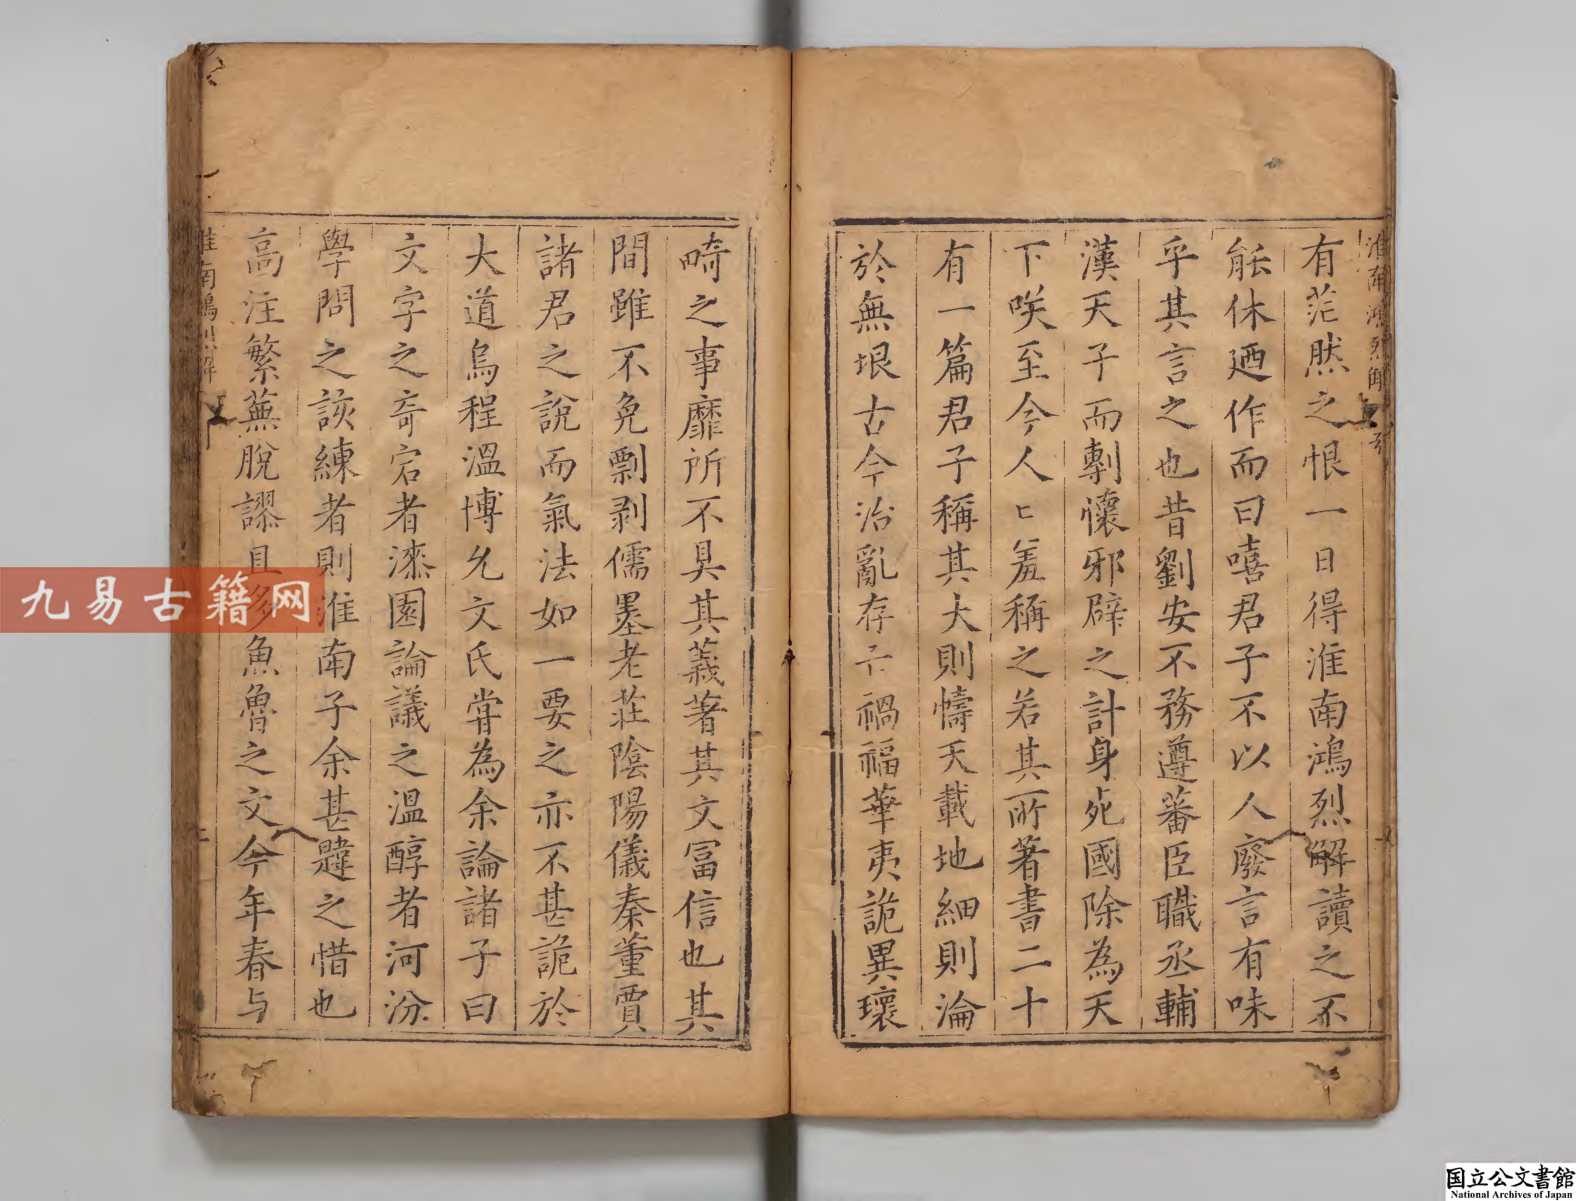 淮南鴻烈解
有茫然之恨一日得淮南鴻烈解讀之不
能休廼作而曰嘻君子不以人廢言有味
乎其言之也昔劉安不務遵蕃臣職丞輔
漢天子而剸懷邪辟之計身死國除為天
下咲至今人〻羞稱之若其所著書二十
有一篇君子稱其大則幬天載地細則淪
於無垠古今治亂存亡禍福華夷詭異瓌
畸之事靡所不具其義著其文富信也其
間雖不免剽剥儒墨老莊陰陽儀秦董賈
諸君之說而氣法如一要之亦不甚詭於
大道烏程溫博允文氏甞為余論諸子曰
文字之奇宕者漆園論議之溫醇者河汾
學問之該練者則淮南子余甚韙之惜也
高注繁蕪脫謬且多魚魯之文今年春与
淮南鴻烈解
九易古籍网
国立公文書館
National Archives of Japan